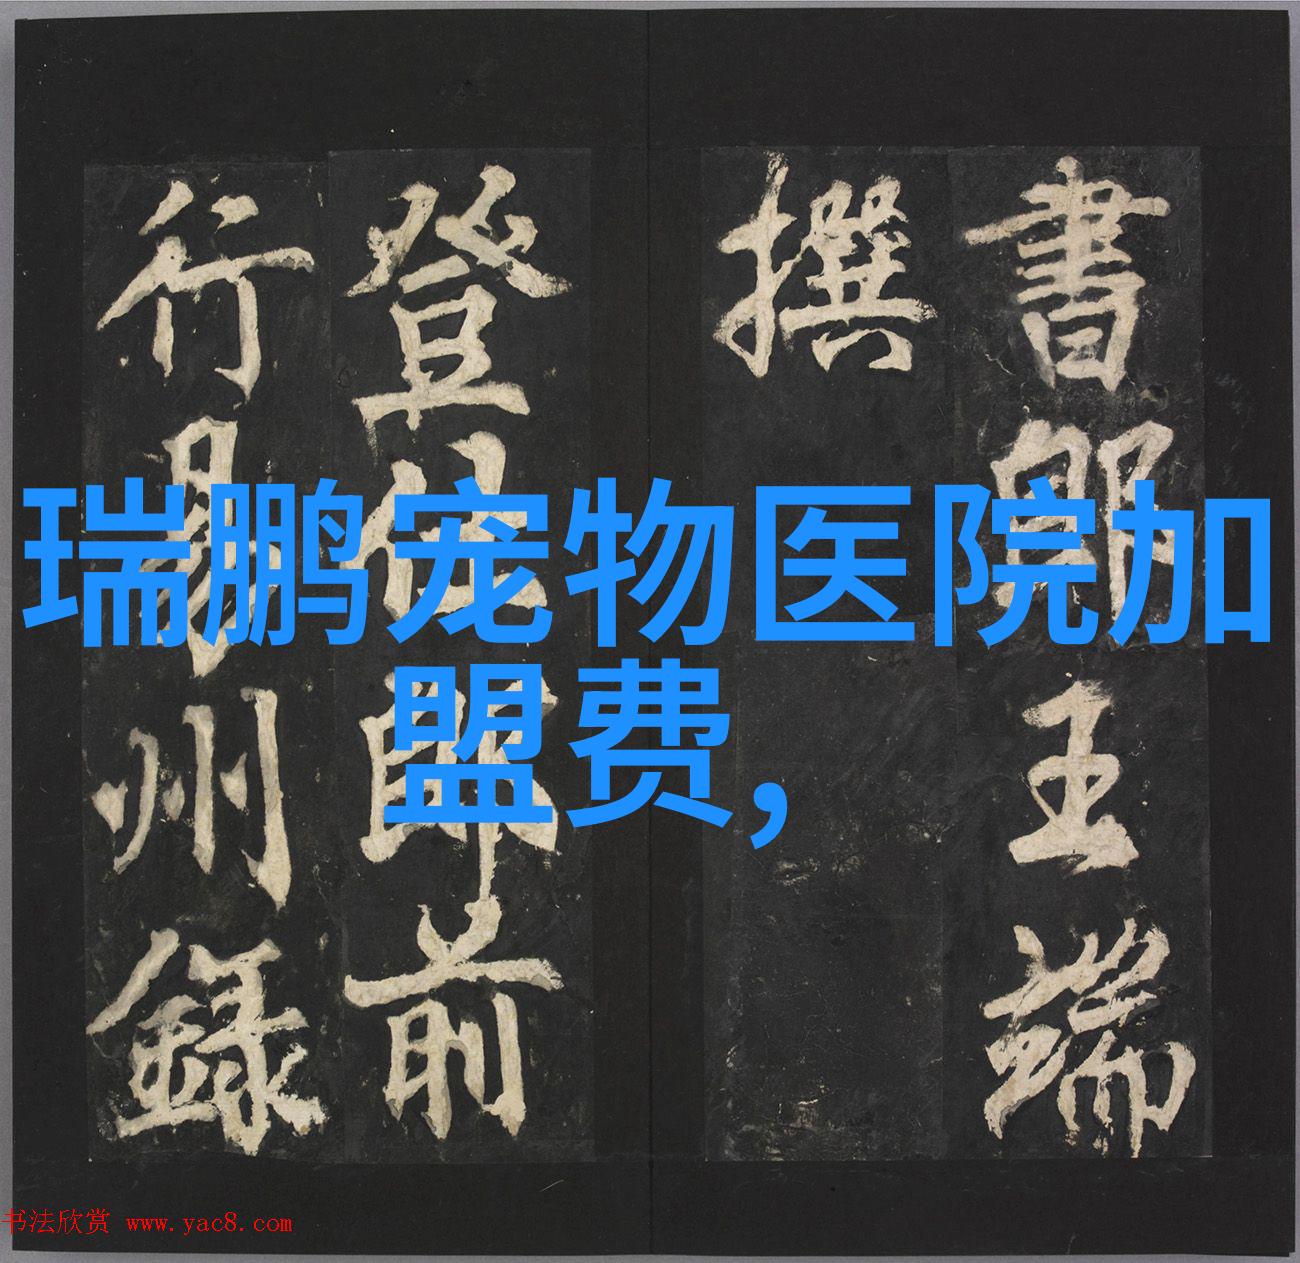 書郎王端
撰
登仕郎前
行易州錄
瑞鹏宠物医院加
盟费，
书法欣赏 www.yac8.com